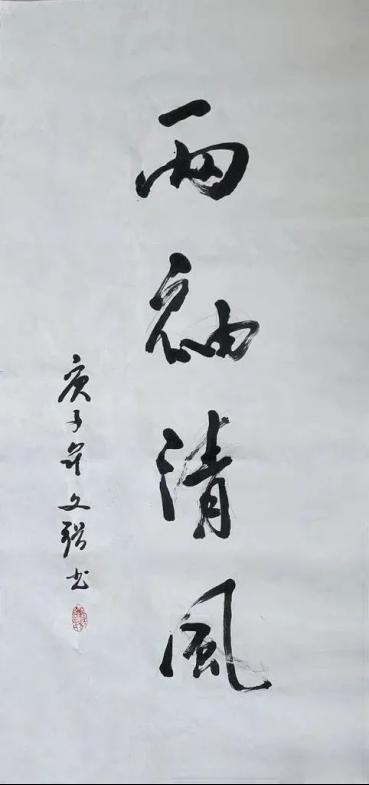 兩袖清風
庚子年文鍇书